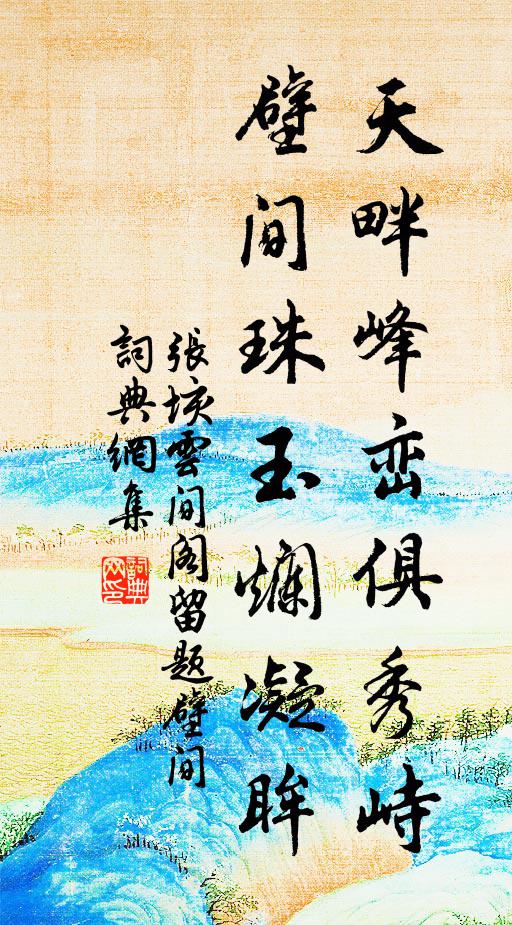 天畔峰峦俱秀峙
壁间珠玉爛凝眸
張垓雲间阁留题壁间
詞典網集
詞典网印